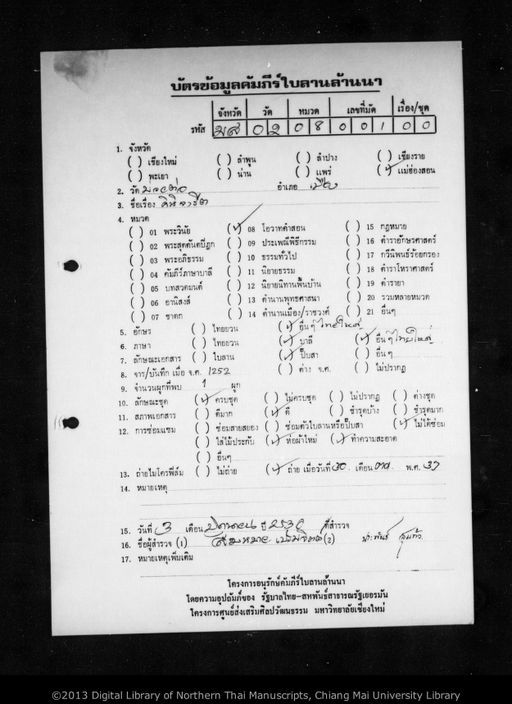 บัตรข้อมูลคัมภีร์ใบลานล้านนา
จังหวัด วัด หมวด เลขที่มัด เรื่อง/ชุด
รหัส มส 0 2 0 8 0 0 1 0 0
1. จังหวัด
( ) เชียงใหม่ ( ) ลำพูน ( ) ลำปาง ( ) เชียงราย
( ) พะเยา ( ) น่าน ( ) แพร่ (✓) แม่ฮ่องสอน
2. วัด อำเภอ เมือง
3. ชื่อเรื่อง
4. หมวด
( ) 01 พระวินัย (✓) 08 โอวาทคำสอน ( ) 15 กฎหมาย
( ) 02 พระสุตตันตปิฎก ( ) 09 ประเพณีพิธีกรรม ( ) 16 ตำราอักษรศาสตร์
( ) 03 พระอภิธรรม ( ) 10 ธรรมทั่วไป ( ) 17 กวีนิพนธ์ร้อยกรอง
( ) 04 คัมภีร์ภาษาบาลี ( ) 11 นิยายธรรม ( ) 18 ตำราโหราศาสตร์
( ) 05 บทสวดมนต์ ( ) 12 นิยายนิทานพื้นบ้าน ( ) 19 ตำรายา
( ) 06 อานิสงส์ ( ) 13 ตำนานพุทธศาสนา ( ) 20 รวมหลายหมวด
( ) 07 ชาดก ( ) 14 ตำนานเมือง/ราชวงศ์ ( ) 21 อื่นๆ
5. อักษร ( ) ไทยยวน (✓) อื่นๆ ไทยใหญ่
6. ภาษา ( ) ไทยยวน (✓) บาลี (✓) อื่นๆ ไทยใหญ่
7. ลักษณะเอกสาร ( ) ใบลาน (✓) ปั๊บสา ( ) อื่นๆ
8. จาร/บันทึก เมื่อ จ.ศ. 1252 ( ) ค่าง จ.ศ. ( ) ไม่ปรากฏ
9. จำนวนผูกที่พบ 1 ผูก
10. ลักษณะชุด (✓) ครบชุด ( ) ไม่ครบชุด ( ) ไม่ปรากฏ ( ) ต่างชุด
11. สภาพเอกสาร ( ) ดีมาก (✓) ดี ( ) ชำรุดบ้าง ( ) ชำรุดมาก
12. การซ่อมแซม ( ) ซ่อมสายสยอง ( ) ซ่อมตัวใบลานหรือปั๊บสา (✓) ไม่ได้ซ่อม
( ) ใส่ไม้ประกับ (✓) ห่อผ้าใหม่ (✓) ทำความสะอาด
( ) อื่นๆ
13. ถ่ายไมโครฟิล์ม ( ) ไม่ถ่าย (✓) ถ่าย เมื่อวันที่ 30 เดือน ตค. พ.ศ. 37
14. หมายเหตุ
15. วันที่ 3 เดือน ปี 2530 ที่สำรวจ
16. ชื่อผู้สำรวจ (1) (2)
17. หมายเหตุเพิ่มเติม
โครงการอนุรักษ์คัมภีร์ใบลานล้านนา
โดยความอุปถัมภ์ของ รัฐบาลไทย-สหพันธ์สาธารณรัฐเยอรมัน
โครงการศูนย์ส่งเสริมศิลปวัฒนธรรม มหาวิทยาลัยเชียงใหม่
©2013 Digital Library of Northern Thai Manuscripts, Chiang Mai University Library